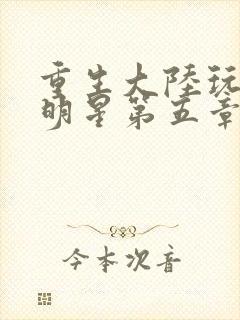 重生大陸玩
明星第五章
今本次音